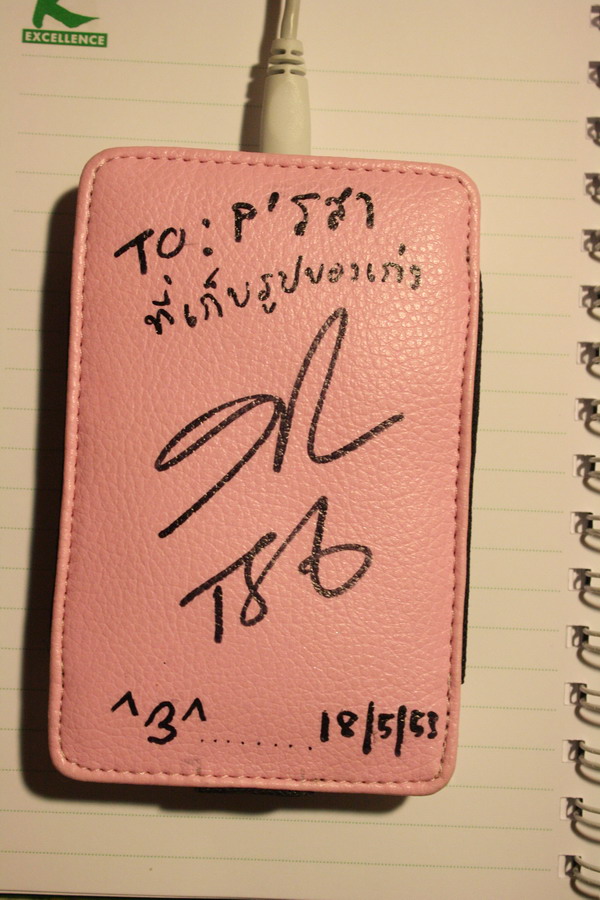 EXCELLENCE
TO: P'รสา
ที่เก็บรูปของเก่ง
TS6
^3^..........18/5/53